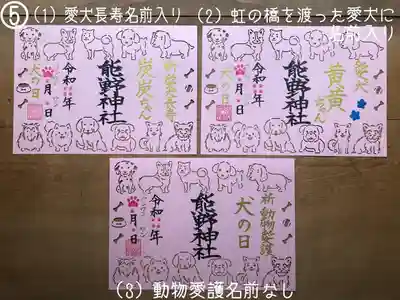 ⑤(1)愛犬長寿名前入り
(2)虹の橋を渡った愛犬に
名前入り
祈 愛犬長寿
炭炭ちゃん
熊野神社
令和 年
月 日
犬の日
愛犬
黄黄ちゃん
熊野神社
令和 年
月 日
犬の日
祈 動物愛護
犬の日
熊野神社
令和 年
月 日
ワン ワン
(3)動物愛護名前なし